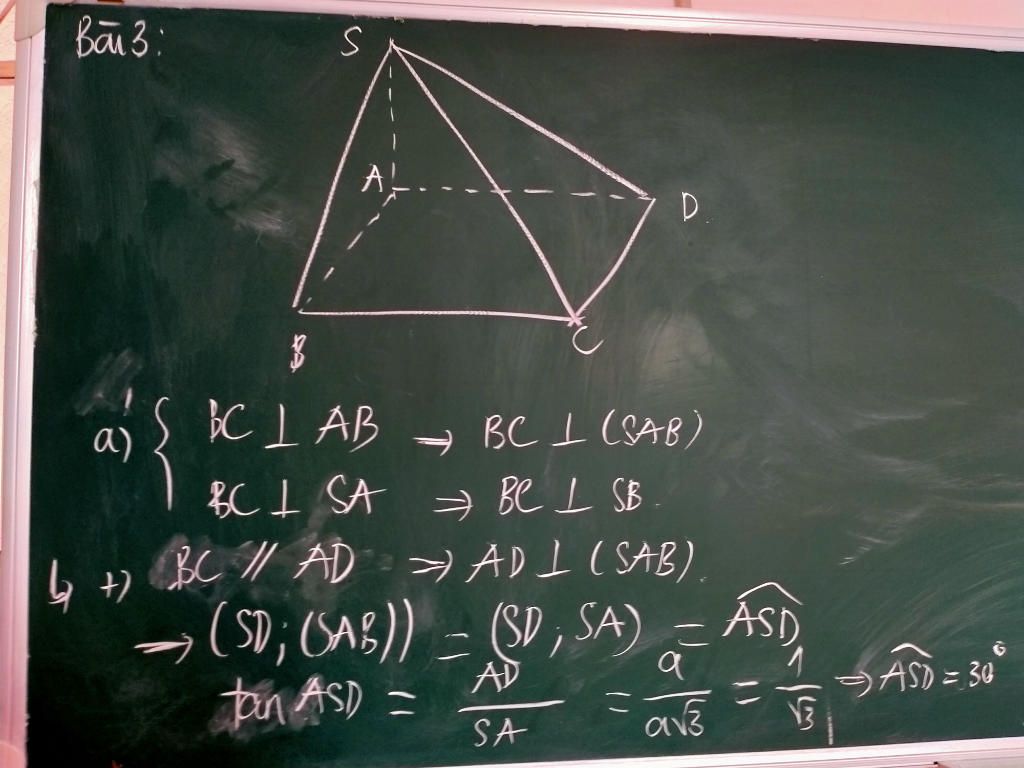 Bài 3:
S
A
D
B
C
a) { BC ⊥ AB ⇒ BC ⊥ (SAB)
BC ⊥ SA ⇒ BC ⊥ SB
b, +) BC // AD ⇒ AD ⊥ (SAB).
→ (SD; (SAB)) = (SD; SA) = \widehat{ASD}
tan ASD = \frac{AD}{SA} = \frac{a}{a√3} = \frac{1}{√3} ⇒ \widehat{ASD} = 30°